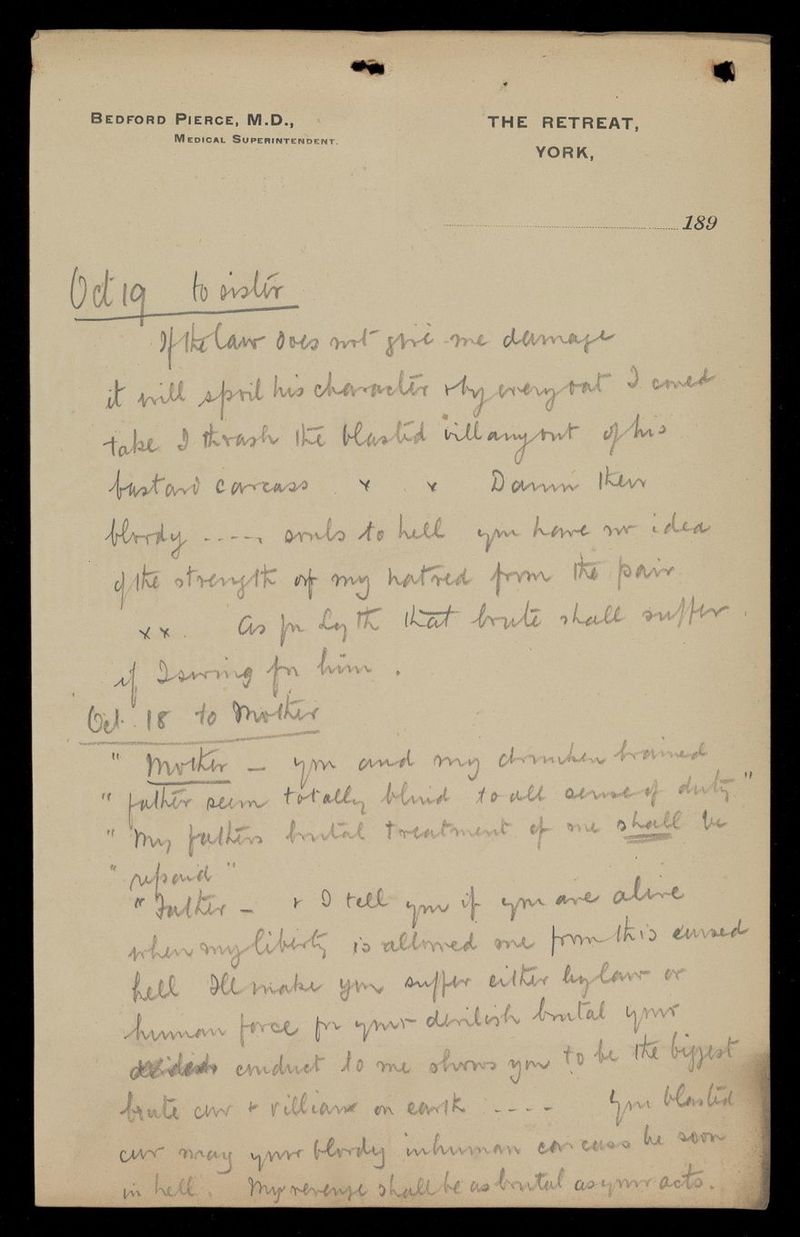 BEDFORD PIERCE, M.D.,
MEDICAL SUPERINTENDENT.
THE RETREAT,
YORK,
189
Oct 19 to sister
If the law does not give me damage
it will spoil his character & by every oat I coued
take I thrash the blasted villany out of his
bastard carcass x x Damn their
bloody ----, souls to hell you have no idea
of the strength of my hatred from the pair
xx. As for Lyth that brute shall suffer
if I swing for him.
Oct. 18 to Mother
" Mother — you and my drunken brained
" father seem totally blind to all sense of duty "
" My fathers brutal treatment of me shall be
" repaid "
" Father — & I tell you if you are alive
when my liberty is allowed me from this cursed
hell Ill make you suffer either by law or
human force for your devilish brutal your
conduct to me shows you to be the biggest
brute cur & villian on earth ---- You blasted
cur may your bloody inhuman carcass be soon
in hell. My revenge shall be as brutal as your acts.